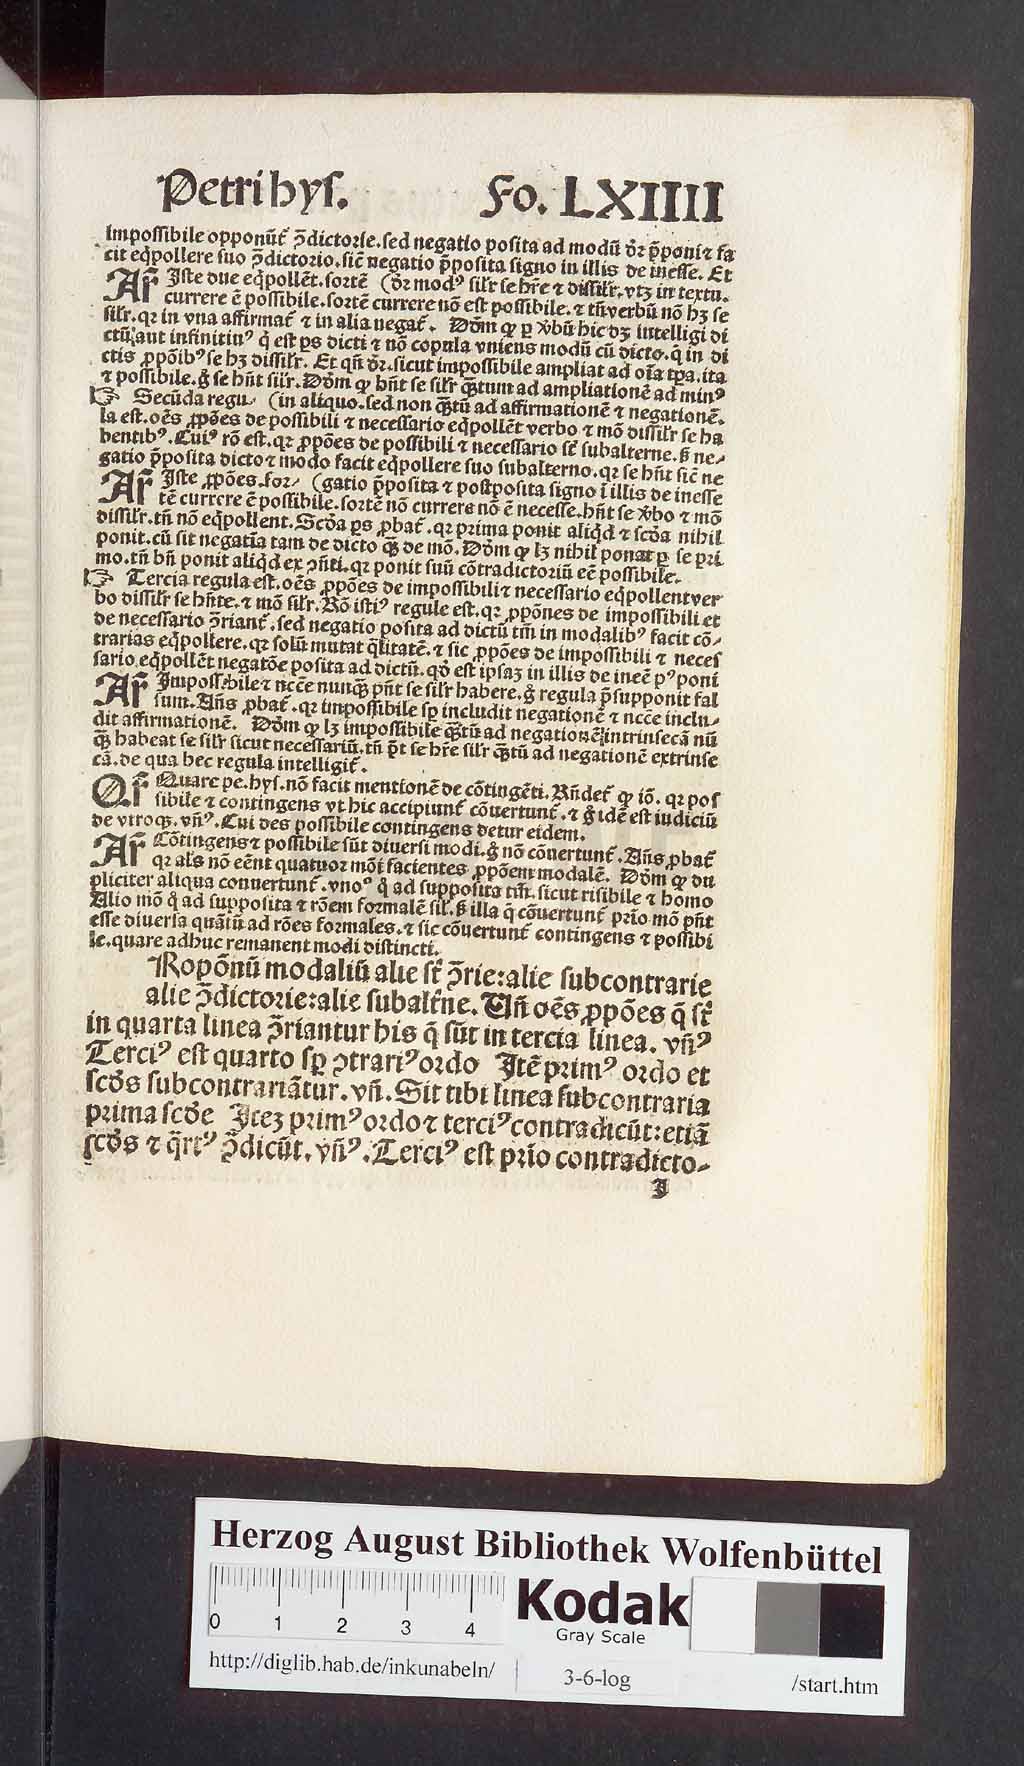 Petri hyſ. Fo. LXIIII
impoſſibile opponūt᷑ ꝯ̄dictorie. ſed negatio poſita ad modū dr̄ p̄poni ⁊ fa
cit eq̄pollere ſuo ꝯ̄dictorio. ſic̄ negatio p̄poſita ſigno in illis de ineſſe. Et
Ar̄ Iſte due eq̄pollēt. ſortē (dr̄ modꝰ ſilr̄ ſe hr̄e ⁊ diſſilr̄. vtꝫ in textu.
currere ē poſſibile. ſortē currere nō eſt poſſibile. ⁊ tn̄ verbū nō hꝫ ſe
ſilr̄. qꝛ in vna affirmat᷑ ⁊ in alia negat᷑. Dōm ꝙ ꝑ v̄bū hic dꝫ intelligi di
ctū: aut infinitiuꝰ q̄ eſt ꝑs dicti ⁊ nō copula vniens modū cū dicto. q̄ in di
ctis ꝓpōibꝰ ſe hꝫ diſſilr̄. Et qn̄ dr̄. ſicut impoſſibile ampliat ad oīa tꝑa. ita
⁊ poſſibile. g̊ ſe hn̄t ſilr̄. Dōm ꝙ hn̄t ſe ſilr̄ q̄tum ad ampliationē ad minꝰ
☞ Secūda regu⸗ (in aliquo. ſed non q̄tū ad affirmationē ⁊ negationē.
la eſt. oēs ꝓpōes de poſſibili ⁊ neceſſario eq̄pollēt verbo ⁊ mō diſſilr̄ ſe ha
bentibꝰ. Cuiꝰ rō eſt. qꝛ ꝓpōes de poſſibili ⁊ neceſſario ſt᷑ ſubalterne. ſꝫ ne⸗
gatio p̄poſita dicto ⁊ modo facit eq̄pollere ſuo ſubalterno. qꝛ ſe hn̄t ſic̄ ne
Ar̄ Iſte ꝓpōes. ſor⸗ (gatio p̄poſita ⁊ poſtpoſita ſigno ī illis de ineſſe
tē currere ē poſſibile. ſortē nō currere nō ē neceſſe. hn̄t ſe v̄bo ⁊ mō
diſſilr̄. tn̄ nō eq̄pollent. Scd̄a ꝑs ꝓbat᷑. qꝛ prima ponit aliqd̄ ⁊ ſcd̄a nihil
ponit. cū ſit negatīa tam de dicto qꝫ̄ de mō. Dōm ꝙ lꝫ nihil ponat ꝑ ſe pri
mo. tn̄ bn̄ ponit aliqd̄ ex ꝯn̄ti. qꝛ ponit ſuū cōtradictoriū eē poſſibile.
☞ Tercia regula eſt. oēs ꝓpōes de impoſſibili ⁊ neceſſario eq̄pollent ver
bo diſſilr̄ ſe hn̄te. ⁊ mō ſilr̄. Rō iſtiꝰ regule eſt. qꝛ ꝓpōnes de impoſſibili et
de neceſſario ꝯ̄riant᷑. ſed negatio poſita ad dictū tm̄ in modalibꝰ facit cō⸗
trarias eq̄pollere. qꝛ ſolū mutat q̄litatē. ⁊ ſic ꝓpōes de impoſſibili ⁊ neceſ
ſario eq̄pollēt negatōe poſita ad dictū. qd̊ eſt ipſaꝫ in illis de ineē pꝰponi
Ar̄ Impoſſibile ⁊ nccē nunqꝫ̄ pn̄t ſe ſilr̄ habere. g̊ regula p̄ſupponit fal
ſum. Ans̄ ꝓbat᷑. qꝛ impoſſibile ſꝑ includit negationē ⁊ nccē inclu⸗
dit affirmationē. Dōm ꝙ lꝫ impoſſibile q̄tū ad negationē intrinſecā nū
qꝫ̄ habeat ſe ſilr̄ ſicut neceſſariū. tn̄ p̄t ſe hr̄e ſilr̄ q̄tū ad negationē extrinſe
cā. de qua hec regula intelligit᷑.
Qr̄ Quare pe. hyſ. nō facit mentionē de cōtingēti. Rn̄det᷑ ꝙ iō. qꝛ poſ
ſibile ⁊ contingens vt hic accipiunt᷑ cōuertunt᷑. ⁊ g̊ idē eſt iudiciū
de vtroqꝫ. vn̄ꝰ. Cui des poſſibile contingens detur eidem.
Ar̄ Cōtingens ⁊ poſſibile ſūt diuerſi modi. g̊ nō cōuertunt᷑. Ans̄ ꝓbat᷑
qꝛ als̄ nō eēnt quatuor mōi facientes ꝓpōem modalē. Dōm ꝙ du
pliciter aliqua conuertunt᷑. vnoº q̊ ad ſuppoſita tm̄. ſicut riſibile ⁊ homo
Alio mō q̊ ad ſuppoſita ⁊ rōem formalē ſil᷑. ſꝫ illa q̄ cōuertunt᷑ prio mō pn̄t
eſſe diuerſa quātū ad rōes formales. ⁊ ſic cōuertunt᷑ contingens ⁊ poſſibi
le. quare adhuc remanent modi diſtincti.
Ropōnū modaliū alie ſt᷑ ꝯ̄rie: alie ſubcontrarie
alie ꝯ̄dictorie: alie ſubalt᷑ne. Vn̄ oēs ꝓpōes q̄ ſt᷑
in quarta linea ꝯ̄riantur his q̄ ſūt in tercia linea. vn̄ꝰ
Terciꝰ eſt quarto ſꝑ ꝯtrariꝰ ordo Itē primꝰ ordo et
ſcd̄s ſubcontrariātur. vn̄. Sit tibi linea ſubcontraria
prima ſcd̄e Iteꝫ primꝰ ordo ⁊ terciꝰ contradicūt: etiā
ſcd̄s ⁊ q̄rtꝰ ꝯ̄dicūt. vn̄ꝰ. Terciꝰ eſt prīo contradicto⸗
I
Herzog August Bibliothek Wolfenbüttel
0 1 2 3 4
Kodak
Gray Scale
http://diglib.hab.de/inkunabeln/ 3-6-log /start.htm